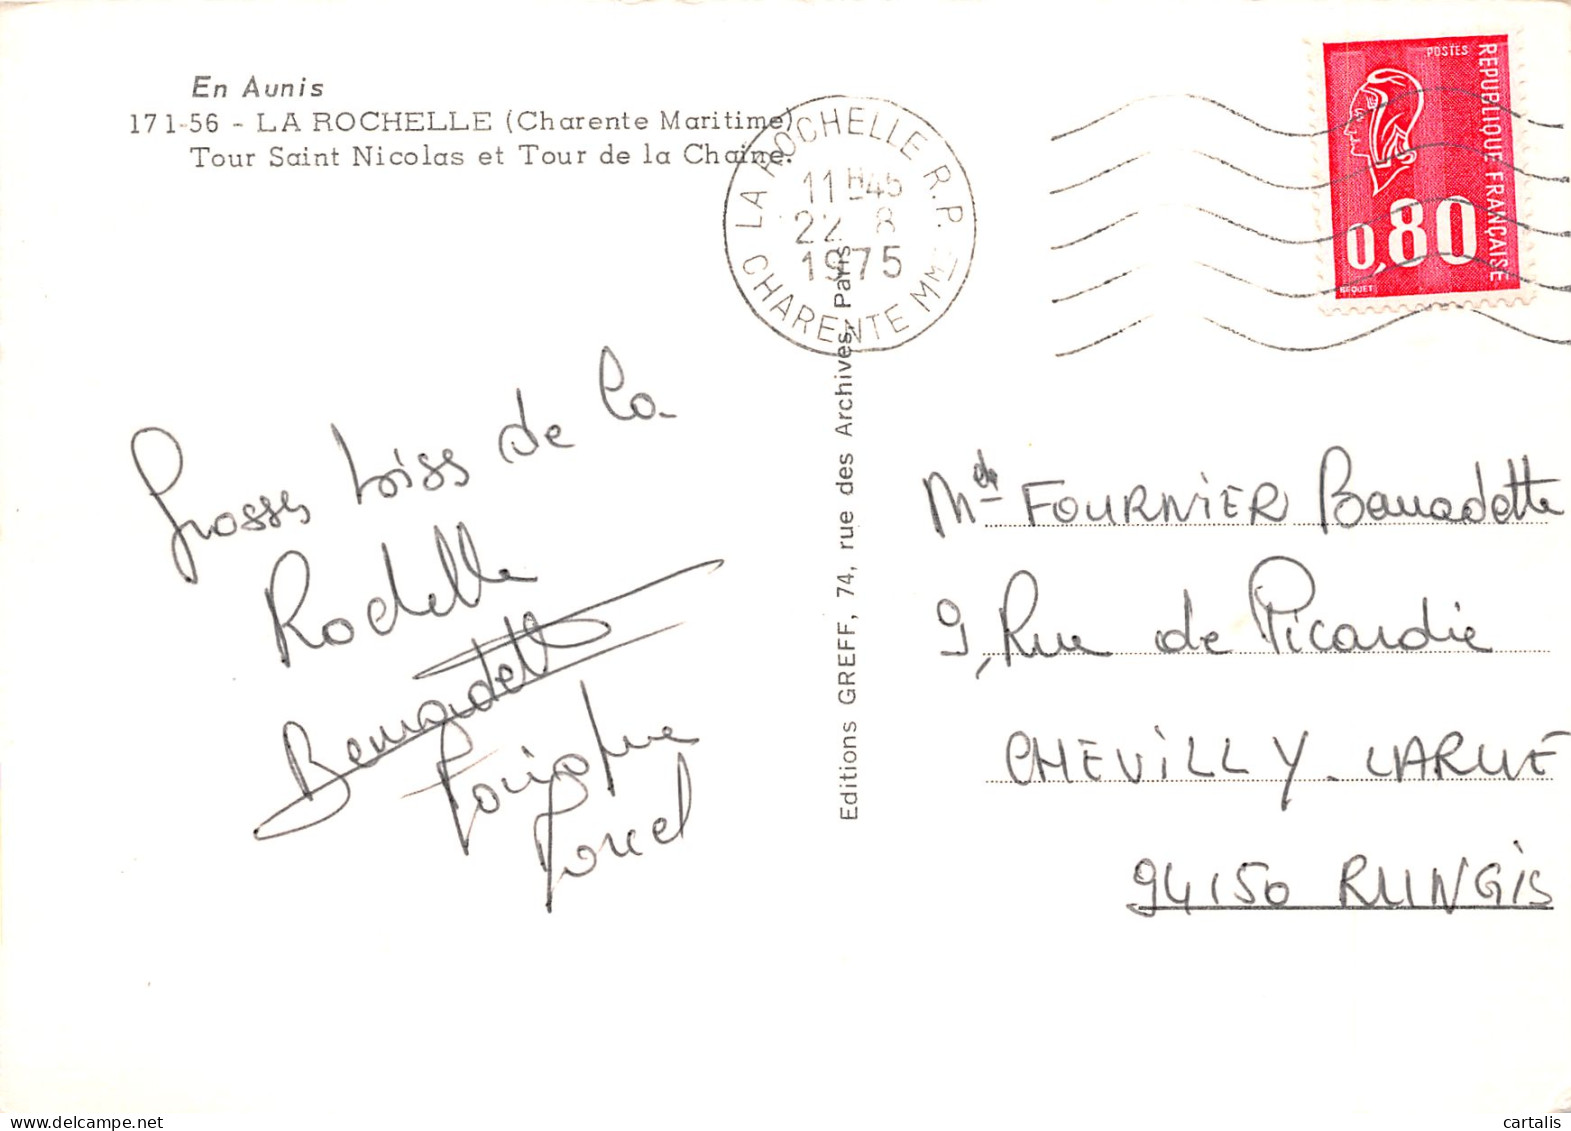 En Aunis
171-56 - LA ROCHELLE (Charente Maritime)
Tour Saint Nicolas et Tour de la Chaîne.
LA ROCHELLE R.P.
11H45
22 8
1975
CHARENTE MME
POSTES
REPUBLIQUE FRANÇAISE
0,80
BEQUET
Grosses bises de la
Rochelle
Bernadette
Editions GREFF, 74, rue des Archives, Paris
Melle FOURNIER Bernadette
9, Rue de Picardie
CHEVILLY-LARUE
94150 RUNGIS
cartalis